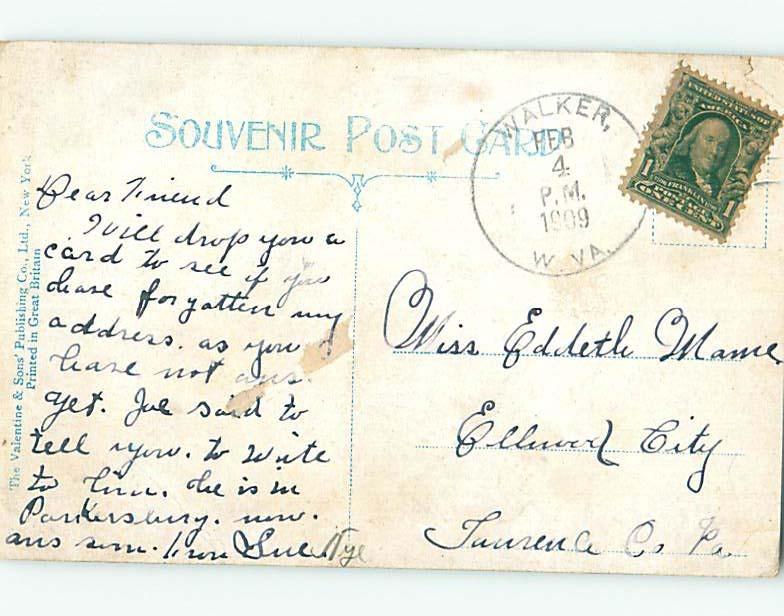 SOUVENIR POST CARD
WALKER,
FEB
4
P.M.
1909
W. VA.
UNITED STATES OF
AMERICA
1 FRANKLIN 1
ONE CENT
The Valentine & Sons' Publishing Co., Ltd., New York
Printed in Great Britain
Dear Friend
I will drop you a
card to see if you
have forgatten my
address. as you
have not ans.
yet. Joe said to
tell you. to write
to him. he is in
Parkersburg. now.
ans soon. from Sue Nye
Miss Eddeth Mame
Ellwood City
Lawrence Co Pa